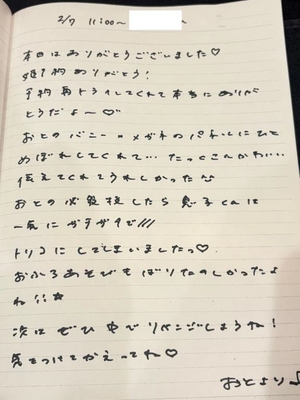 2/7 11:00〜
本日はありがとうございました♡
姫予約ありがとう!
予約再トライしてくれて本当にありが
とうだよ〜♡
おとのバニー メガネのパネルにひと
めぼれしてくれて… たっくさんかわいい
伝えてくれてうれしかった
おとの必殺技したら 息子くんは
一気にガチガチで///
トリコにしてしまいましたっ♡
おふろあそびもばりたのしかったよ
ね!!☆
次はぜひ中でリベンジしようね!
気をつけてかえってね♡
おとより♪